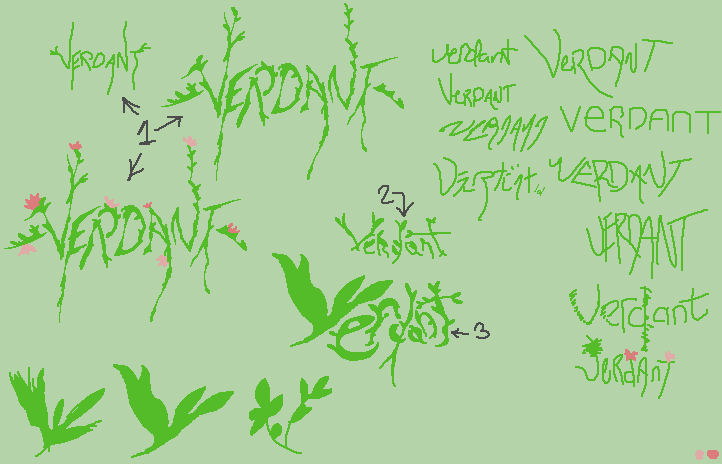 VERDANT
VERDANT
1
VERDANT
2
Verdant
Verdant
3
verdant
VERDANT
VERDANT
VERDANT
VERDANT
VERDANT
Verdant
VERdANT